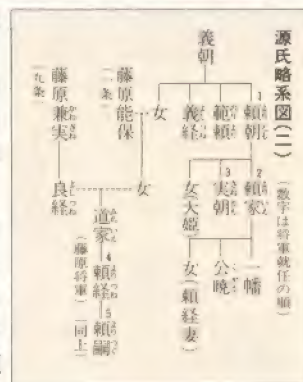 源氏略系図(二)
(数字は将軍就任の順)
義朝
1 頼朝
範頼
義経
女
2 頼家
3 実朝
女(大姫)
一幡
公暁
女(頼経妻)
藤原能保
(一条)
女
藤原兼実
(九条)
良経
道家
4 頼経
(藤原将軍)
5 頼嗣
(同上)